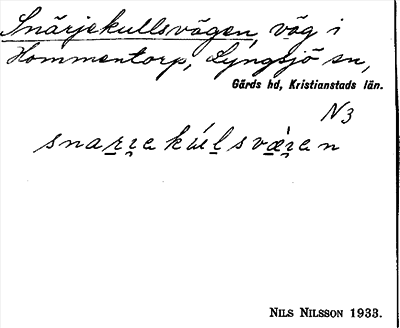 Snärjekullsvägen, väg i
Hommentorp, Lyngsjö sn,
Gärds hd, Kristianstads län.
N3
NILS NILSSON 1933.